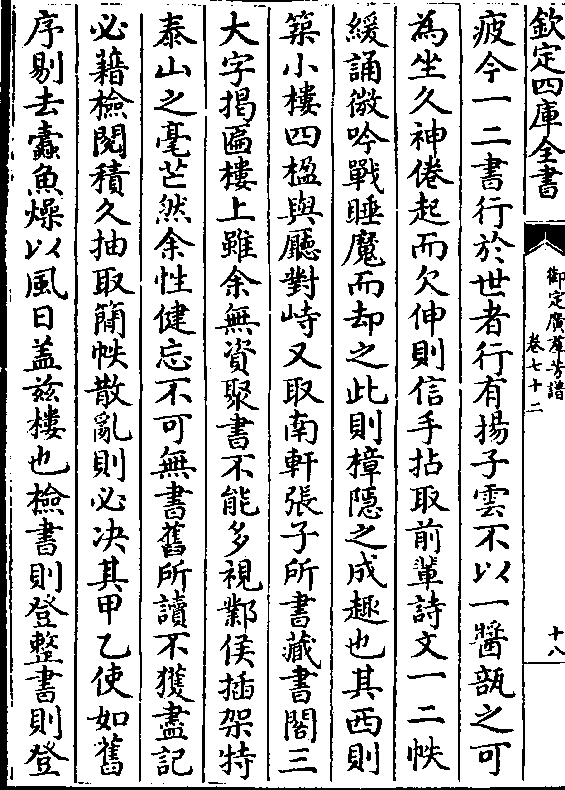 欽定四庫全書
御定廣羣芳譜
卷七十二
十八
疲今一二書行於世者行有揚子雲不以一醬瓿之可
為坐久神倦起而欠伸則信手拈取前輩詩文一二帙
緩誦微吟戰睡魔而却之此則樟隱之成趣也其西則
築小樓四楹與廳對峙又取南軒張子所書藏書閣三
大字揭匾樓上雖余無資聚書不能多視鄴侯插架特
泰山之毫芒然余性健忘不可無書舊所讀不獲盡記
必藉檢閱積久抽取簡帙散亂則必決其甲乙使如舊
序剔去蠹魚燥以風日盖兹樓也檢書則登整書則登